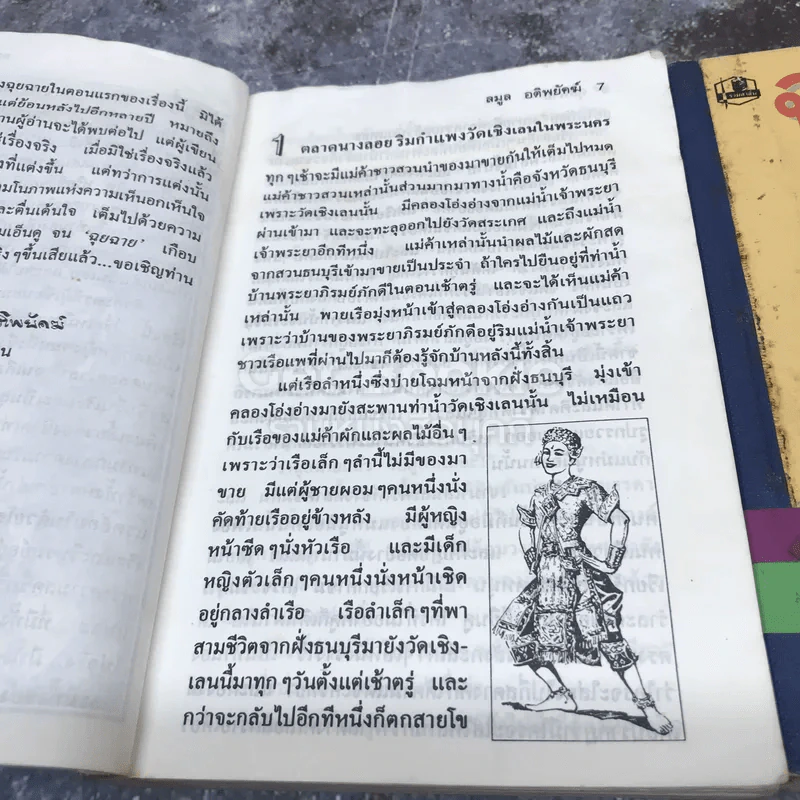 งฉุยฉายในตอนแรกของเรื่องนี้ มิได้
แต่ย้อนหลังไปอีกหลายปี หมายถึง
านผู้อ่านจะได้พบต่อไป แต่ผู้เขียน
เรื่องจริง เมื่อมิใช่เรื่องจริงแล้ว
งที่แต่งขึ้น แต่ทว่าการแต่งนั้น
มในภาพแห่งความเห็นอกเห็นใจ
ละตื่นเต้นใจ เต็มไปด้วยความ
มเอ็นดู จน ‘ฉุยฉาย’ เกือบ
ริงๆขึ้นเสียแล้ว...ขอเชิญท่าน
ทิพยัคฆ์
น
ลมูล อติพยัคฆ์ 7
1 ตลาดนางลอย ริมกำแพงวัดเชิงเลนในพระนคร
ทุกๆเช้าจะมีแม่ค้าชาวสวนนำของมาขายกันให้เต็มไปหมด
แม่ค้าชาวสวนเหล่านั้นส่วนมากมาทางน้ำคือจังหวัดธนบุรี
เพราะวัดเชิงเลนนั้น มีคลองโอ่งอ่างจากแม่น้ำเจ้าพระยา
ผ่านเข้ามา และจะทะลุออกไปยังวัดสระเกศ และถึงแม่น้ำ
เจ้าพระยาอีกทีหนึ่ง แม่ค้าเหล่านั้นนำผลไม้และผักสด
จากสวนธนบุรีเข้ามาขายเป็นประจำ ถ้าใครไปยืนอยู่ที่ท่าน้ำ
บ้านพระยาภิรมย์ภักดีในตอนเช้าตรู่ และจะได้เห็นแม่ค้า
เหล่านั้น พายเรือมุ่งหน้าเข้าสู่คลองโอ่งอ่างกันเป็นแถว
เพราะว่าบ้านของพระยาภิรมย์ภักดีอยู่ริมแม่น้ำเจ้าพระยา
ชาวเรือแพที่ผ่านไปมาก็ต้องรู้จักบ้านหลังนี้ทั้งสิ้น
แต่เรือลำหนึ่งซึ่งบ่ายโฉมหน้าจากฝั่งธนบุรี มุ่งเข้า
คลองโอ่งอ่างมายังสะพานท่าน้ำวัดเชิงเลนนั้น ไม่เหมือน
กับเรือของแม่ค้าผักและผลไม้อื่นๆ
เพราะว่าเรือเล็กๆลำนี้ไม่มีของมา
ขาย มีแต่ผู้ชายผอมๆคนหนึ่งนั่ง
คัดท้ายเรืออยู่ข้างหลัง มีผู้หญิง
หน้าซีดๆนั่งหัวเรือ และมีเด็ก
หญิงตัวเล็กๆคนหนึ่งนั่งหน้าเชิด
อยู่กลางลำเรือ เรือลำเล็กๆที่พา
สามชีวิตจากฝั่งธนบุรีมายังวัดเชิง-
เลนนี้มาทุกๆวันตั้งแต่เช้าตรู่ และ
กว่าจะกลับไปอีกทีหนึ่งก็ตกสายโข